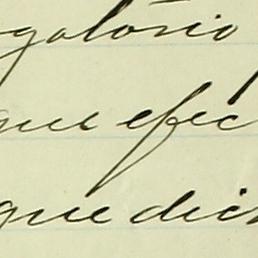 gatório
que efec
que dich